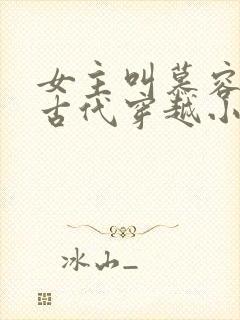 女主叫慕容
古代穿越小
冰山_